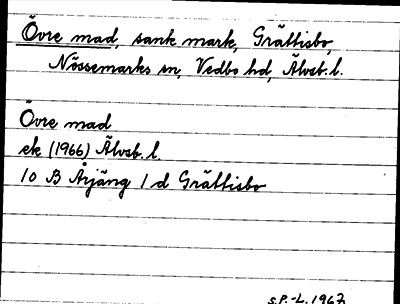 Övre mad, sank mark, Grättisbo,
Nössemarks sn, Vedbo hd, Älvsb. l.
Övre mad
ek (1966) Älvsb. l.
10 B Årjäng 1 d Grättisbo
S.P.-L. 1967